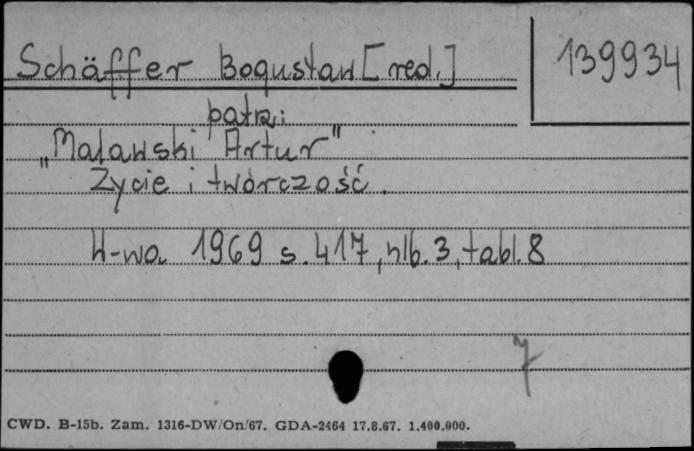 Schäffer Bogusław [red.]
139934
patrz:
„Malawski Artur"
Życie i twórczość.
W-wa 1969 s. 417, nlb. 3, tabl. 8
7
CWD. B-15b. Zam. 1316-DW/On/67. GDA-2464 17.8.67. 1.400.000.